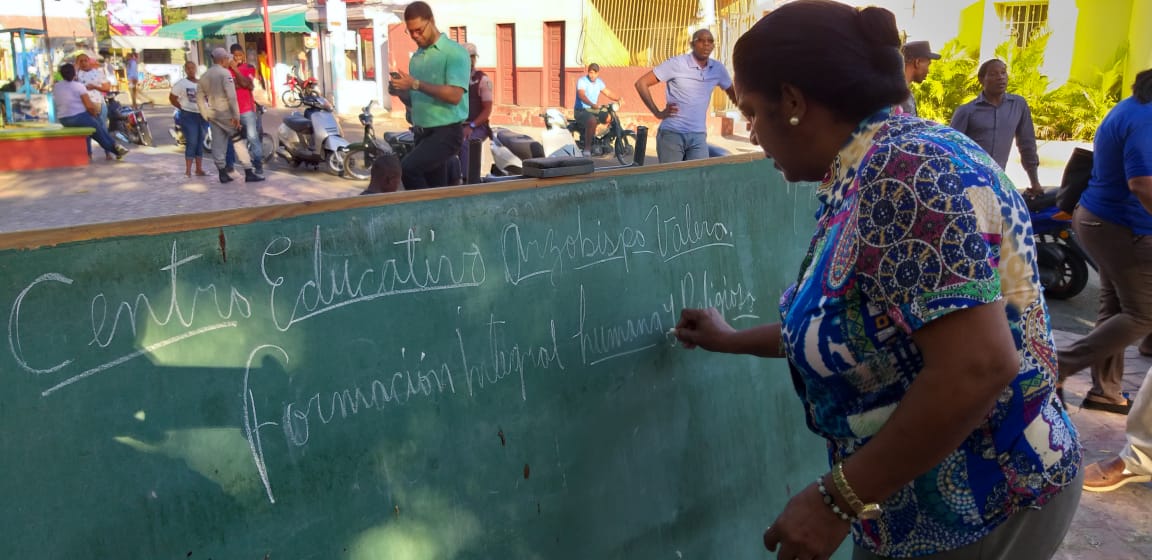 Centro Educativo Arzobispo Valera.
formación Integral humana y Religiosa